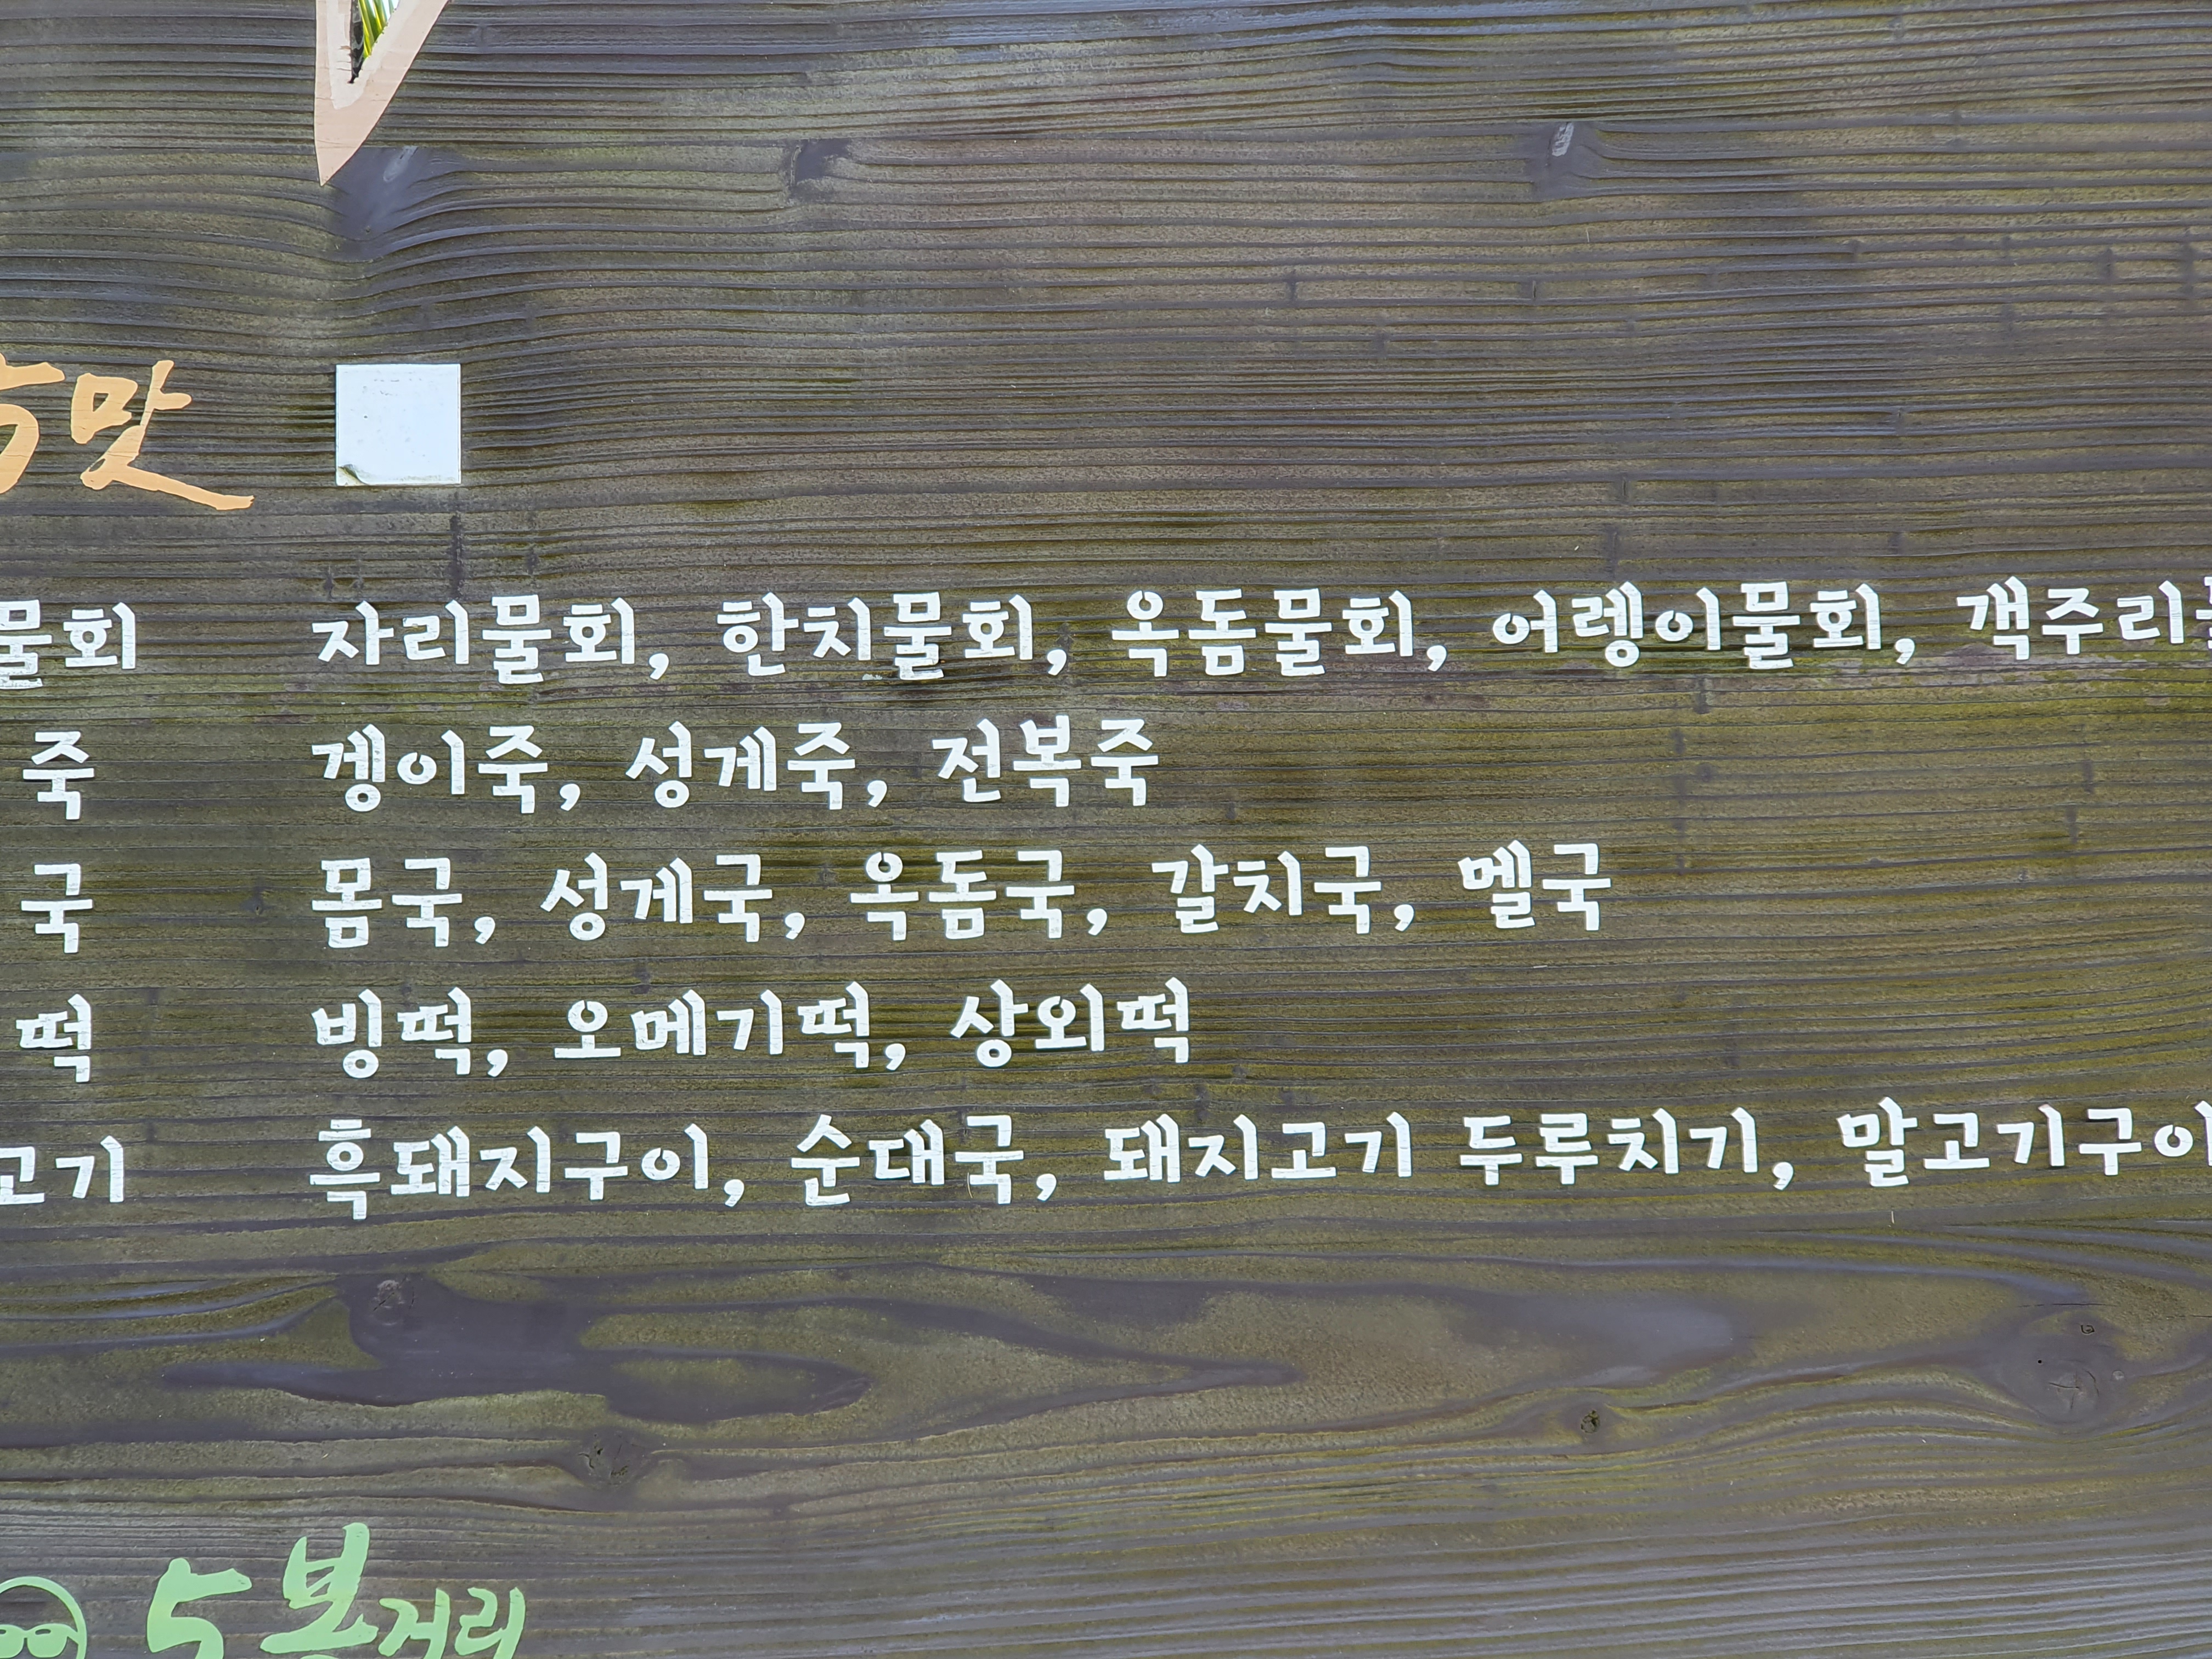 5맛
물회 자리물회, 한치물회, 옥돔물회, 어렝이물회, 객주리
죽 겡이죽, 성게죽, 전복죽
국 몸국, 성게국, 옥돔국, 갈치국, 멜국
떡 빙떡, 오메기떡, 상외떡
고기 흑돼지구이, 순대국, 돼지고기 두루치기, 말고기구이
5 볼거리